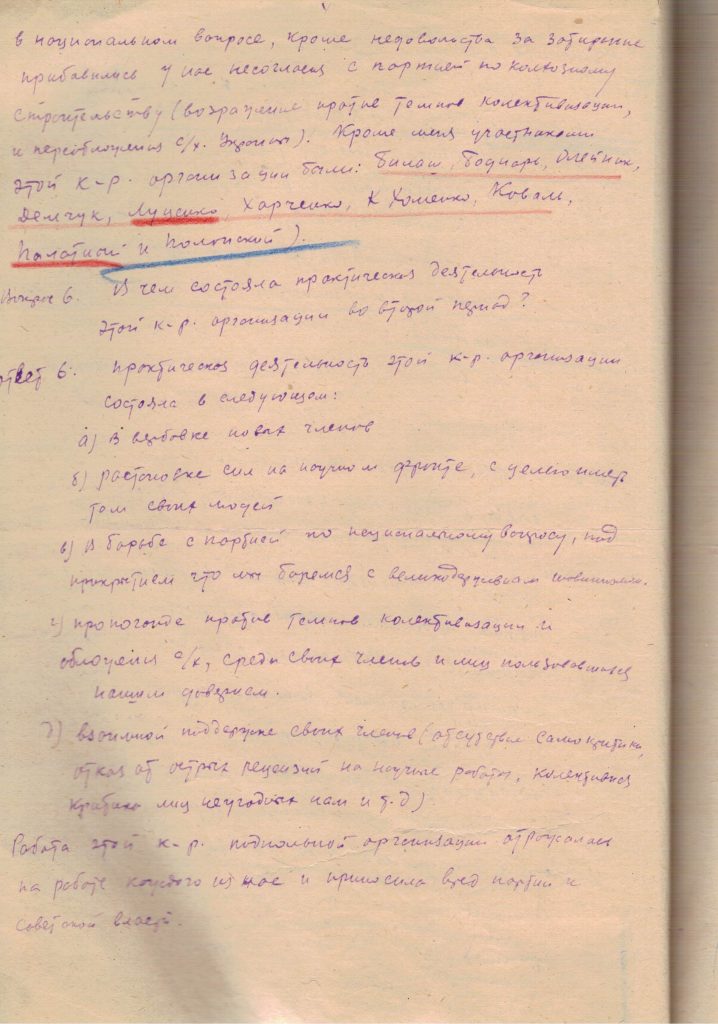 в национальном вопросе, кроме недовольства за
прибавились у нас несогласия с партией по колхозному
строительству (возражение против темпов колективизации,
и переобложения с/х. Украины). Кроме меня участниками
этой к-р. организации были: Билаш, Боднарь, Олейник,
Демчук, Луценко, Харченко, К Хоменко, Коваль,
Палатной и Полонский).
Вопрос 6. В чем состояла практическая деятельность
этой к-р. организации во второй период?
Ответ 6: практическая деятельность этой к-р. организации
состояла в следующем:
а) В вербовке новых членов
б) растановке сил на научном фронте, с целью иметь
там своих людей
в) В борьбе с партией по национальному вопросу, под
прикрытием что мы боремся с великодержавным шовинизмом.
г) пропоганде против темпов колективизации и
обложения с/х, среди своих членов и лиц пользовавшихся
нашим доверием.
д) взаимной поддержке своих членов (отсутствие самокритики,
отказ от острых рецензий на научные работы, колективная
критика лиц неугодных нам и т.д)
Работа этой к-р. подпольной организации отражалась
на работе каждого из нас и приносила вред партии и
советской власти.